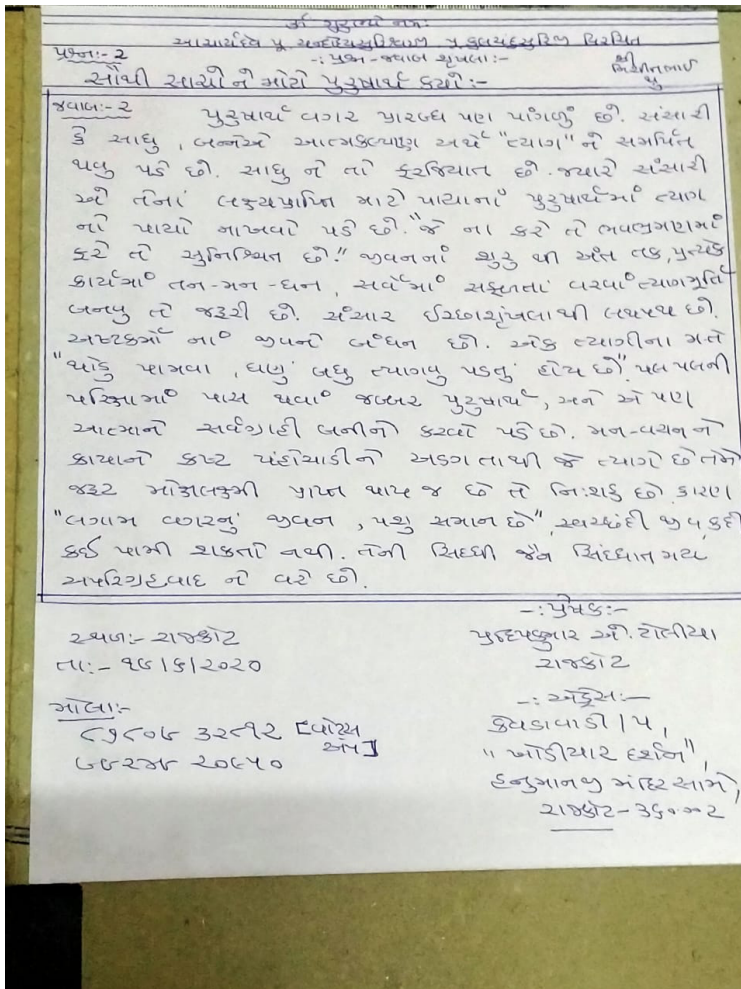 ૐ ગુરુભ્યો નમઃ
આચાર્યદેવ પૂ. ચન્દ્રોદયસુરિશ્વરજી પૂ. કુલચંદ્રસુરિજી વિરચિત
પ્રશ્નઃ- ૨ -: પ્રશ્ન - જવાબ શૃંખલા :- શ્રી
સૌથી સાચો ને મોટો પુરુષાર્થ કયો :-
જવાબઃ- ૨ પુરુષાર્થ વગર પ્રારબ્ધ પણ પાંગળું છે. સંસારી
કે સાધુ, બન્નેએ આત્મકલ્યાણ અર્થે "ત્યાગ" ને સમર્પિત
થવુ પડે છે. સાધુ ને તો ફરજિયાત છે. જ્યારે સંસારી
એ તેનાં લક્ષ્યપ્રાપ્તિ માટે પાયાનાં પુરુષાર્થમાં ત્યાગ
નો પાયો નાખવો પડે છે. "જે ના કરે તે ભવભ્રમણમાં
ફરે તે સુનિશ્ચિત છે." જીવનનાં શરુ થી અંત તક, પ્રત્યેક
કાર્યમાં તન-મન-ધન, સર્વેમાં સફળતાં વરવાં ત્યાગમુર્તિ
બનવુ તે જરૂરી છે. સંસાર ઈચ્છાશૃંખલાથી લથપથ છે.
અષ્ટકર્મો નાં જીવને બંધન છે. એક ત્યાગીના મતે
"થોડુ પામવા, ઘણું બધુ ત્યાગવુ પડતું હોય છે". પલપલની
પરિક્ષામાં પાસ થવાં જબ્બર પુરુષાર્થ, અને એ પણ
આત્માને સર્વગ્રાહી બનીને કરવો પડે છે. મન-વચન ને
કાયાને કષ્ટ પંહોચાડીને અડગતાથી જે ત્યાગે છે તેને
જરૂર મોક્ષલક્ષ્મી પ્રાપ્ત થાય જ છે તે નિઃશક છે. કારણ
"લગામ વગરનું જીવન, પશુ સમાન છે", સ્વચ્છંદી જીવ કદી
કઈ પામી શકતો નથી. તેની સિધ્ધી જૈન સિધ્ધાત
અપરિગ્રહવાદ ને વરે છે.
-: પ્રેષક :-
સ્થળઃ- રાજકોટ એ. ટોલીયા
તાઃ- ૧૭/૬/૨૦૨૦ રાજકોટ
મોબાઃ- -: એડ્રેસ :-
[વોટ્સ એપ] કેવડાવાડી / ૫,
"ખોડીયાર દર્શન",
હનુમાનજી મંદિર સામે,
રાજકોટ - ૩૬૦૦૦૨